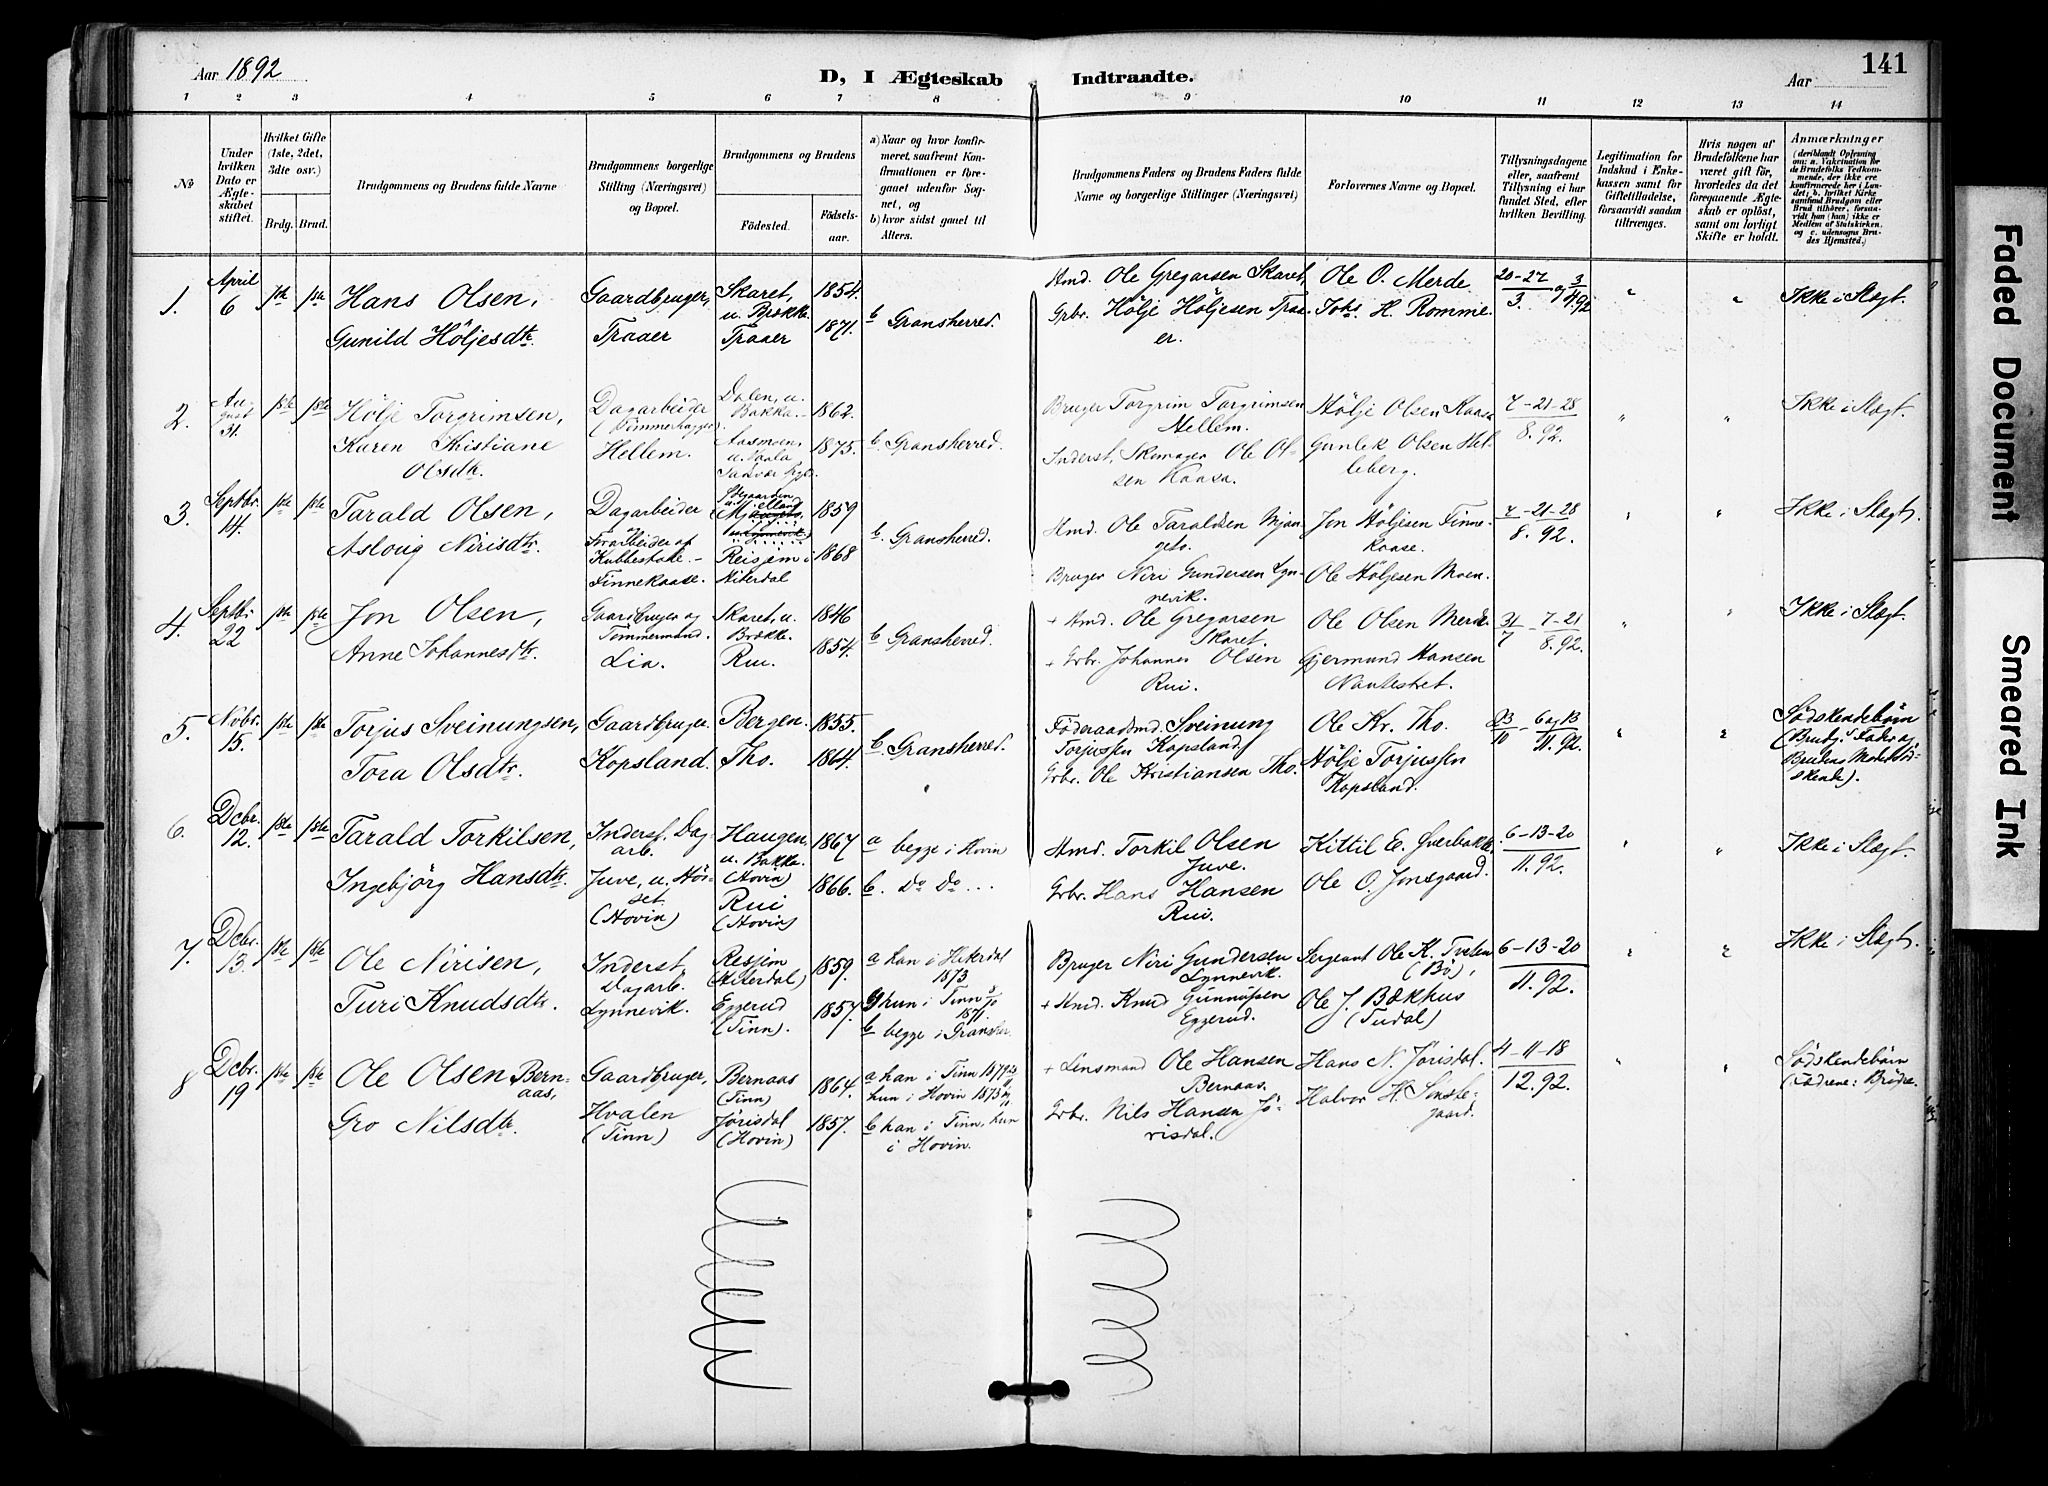 141
Aar 1892
D, I Ægteskab Indtraadte.
Aar
1 2 3 4 5 6 7 8 9 10 11 12 13 14
No
Under hvilken Dato er Ægteskabet stiftet.
Hvilket Gifte (1ste, 2det, 3dte osv.)
Brdg. Brud.
Brudgommens og Brudens fulde Navne
Brudgommens borgerlige Stilling (Næringsvei) og Bopæl.
Brudgommens og Brudens
Födested. Födsels-aar.
a) Naar og hvor konfirmeret, saafremt Konfirmationen er foregaaet udenför Sognet, og
b) hvor sidst gaaet til Alters.
Brudgommens Faders og Brudens Faders fulde Navne og borgerlige Stillinger (Næringsvei)
Forlovernes Navne og Bopæl.
Tillysningsdagene eller, saafremt Tillysning ei har fundet Sted, efter hvilken Bevilling.
Legitimation for Indskud i Enkekassen samt for Giftetilladelse, forsaavidt saadan tiltrænges.
Hvis nogen af Brudefolkene har været gift för, hvorledes da det foregaaende Ægteskab er oplöst, samt om lovligt Skifte er holdt.
Anmærkninger
1. April 6 1ste 1ste
Hans Olsen,
Gunild Höljesdtr.
Gaardbruger,
Traaer
Skaret,
u. Brække
Traaer
1854.
1871.
b Gransherred.
Hmd. Ole Gregarsen Skaret,
Grbr. Hölje Höljesen Traaer.
Ole O. Merde
Johs. H. Romme.
20-27/3 og 3/4 92
Ikke i Slægt.
2. August 31. 1ste 1ste
Hölje Torgrimsen,
Karen Kristiane
Olsdtr.
Dagarbeider
(Tömmerhugger)
Hellem.
Dalen, u.
Bakka.
1862.
1875.
b Gransherred.
Bruger Torgrim Torgrimsen
Hellem.
Inderst, Skomager Ole Olsen Kaasa.
Hölje Olsen Kaasa
Gunlek Olsen Helleberg.
7-21-28
8. 92.
Ikke i Slægt.
3. Septbr. 14. 1ste 1ste
Tarald Olsen,
Asloug Nirisdtr.
Dagarbeider
Finnekaase.
Reisjem i
Hiterdal
1859
1868
b. Gransherred.
Hmd. Ole Taraldsen Mjangeto.
Bruger Niri Gundersen Lynnevik.
Jon Höljesen Finnekaase.
Ole Höljesen Moen.
7-21-28
8. 92.
Ikke i Slægt.
4. Septbr. 22 1ste 1ste
Jon Olsen,
Anne Johannesdtr.
Gaardbruger og
Tömmermand.
Lia.
Skaret, u.
Brække.
Rui.
1846
1854.
b Gransherred.
+ Hmd. Ole Gregarsen
Skaret.
+ Grbr. Johannes Olsen
Rui.
Ole Olsen Merde
Gjermund Hansen
31/7 - 7-21
8. 92.
Ikke i Slægt.
5. Nvbr. 15. 1ste 1ste
Torjus Sveinungsen,
Tora Olsdtr.
Gaardbruger.
Kopsland.
Bergen.
Tho.
1855.
1864.
b. Gransherred.
Föderaadsmd. Sveinung
Torjussen Kopsland
Grbr. Ole Kristiansen Tho.
Ole Kr. Tho.
Hölje Torjussen
Kopsland.
23/10 - 6 og 13
11. 92.
Södskendebörn
(Brudg.s Fader og
Brudens Moder Södskende).
6. Dcbr. 12. 1ste 1ste
Tarald Torkilsen,
Ingebjörg Hansdtr.
Inderst. Dagarb.
Juve, u. Hörset
(Hovin)
Haugen,
u. Bakke.
(Hovin)
Rui
(Hovin)
1867
1866.
a begge i Hovin
b. Do Do...
Hmd. Torkil Olsen
Juve.
Grbr. Hans Hansen
Rui.
Kittil E. Sverbakke.
Ole O. Jonsgaard.
6-13-20
11. 92.
Ikke i Slægt.
7. Dcbr. 13. 1ste 1ste
Ole Nirisen,
Turi Knudsdtr.
Inderst,
Dagarb.
Lynnevik.
Resjem
(Hiterdal)
Eggerud
(Tinn).
1859.
1857.
a han i Hiterdal
1873
hun i Tinn
1871.
b begge i Gransher.
Bruger Niri Gundersen
Lynnevik.
+ Hmd. Knud Gunnufsen
Eggerud.
Sergeant Ole K. Tveten
(Bö),
Ole J. Bækhus
(Tudal)
6-13-20
11. 92.
Ikke i Slægt.
8 Dcbr. 19 1ste 1ste
Ole Olsen Bernaas,
Gro Nilsdtr.
Gaardbruger,
Hvalen
(Tinn)
Bernaas
(Tinn)
Jörisdal
(Hovin)
1864.
1857.
a han i Tinn 1879
hun i Hovin 1873
b han i Tinn, hun
i Hovin.
+ Lensmand Ole Hansen
Bernaas.
Grbr. Nils Hansen Jörisdal.
Hans N. Jörisdal.
Halvor H. Sönstegaard.
4-11-18
12. 92.
Södskendebörn
(Fædrene: Brödre.
Faded Document
Smeared Ink